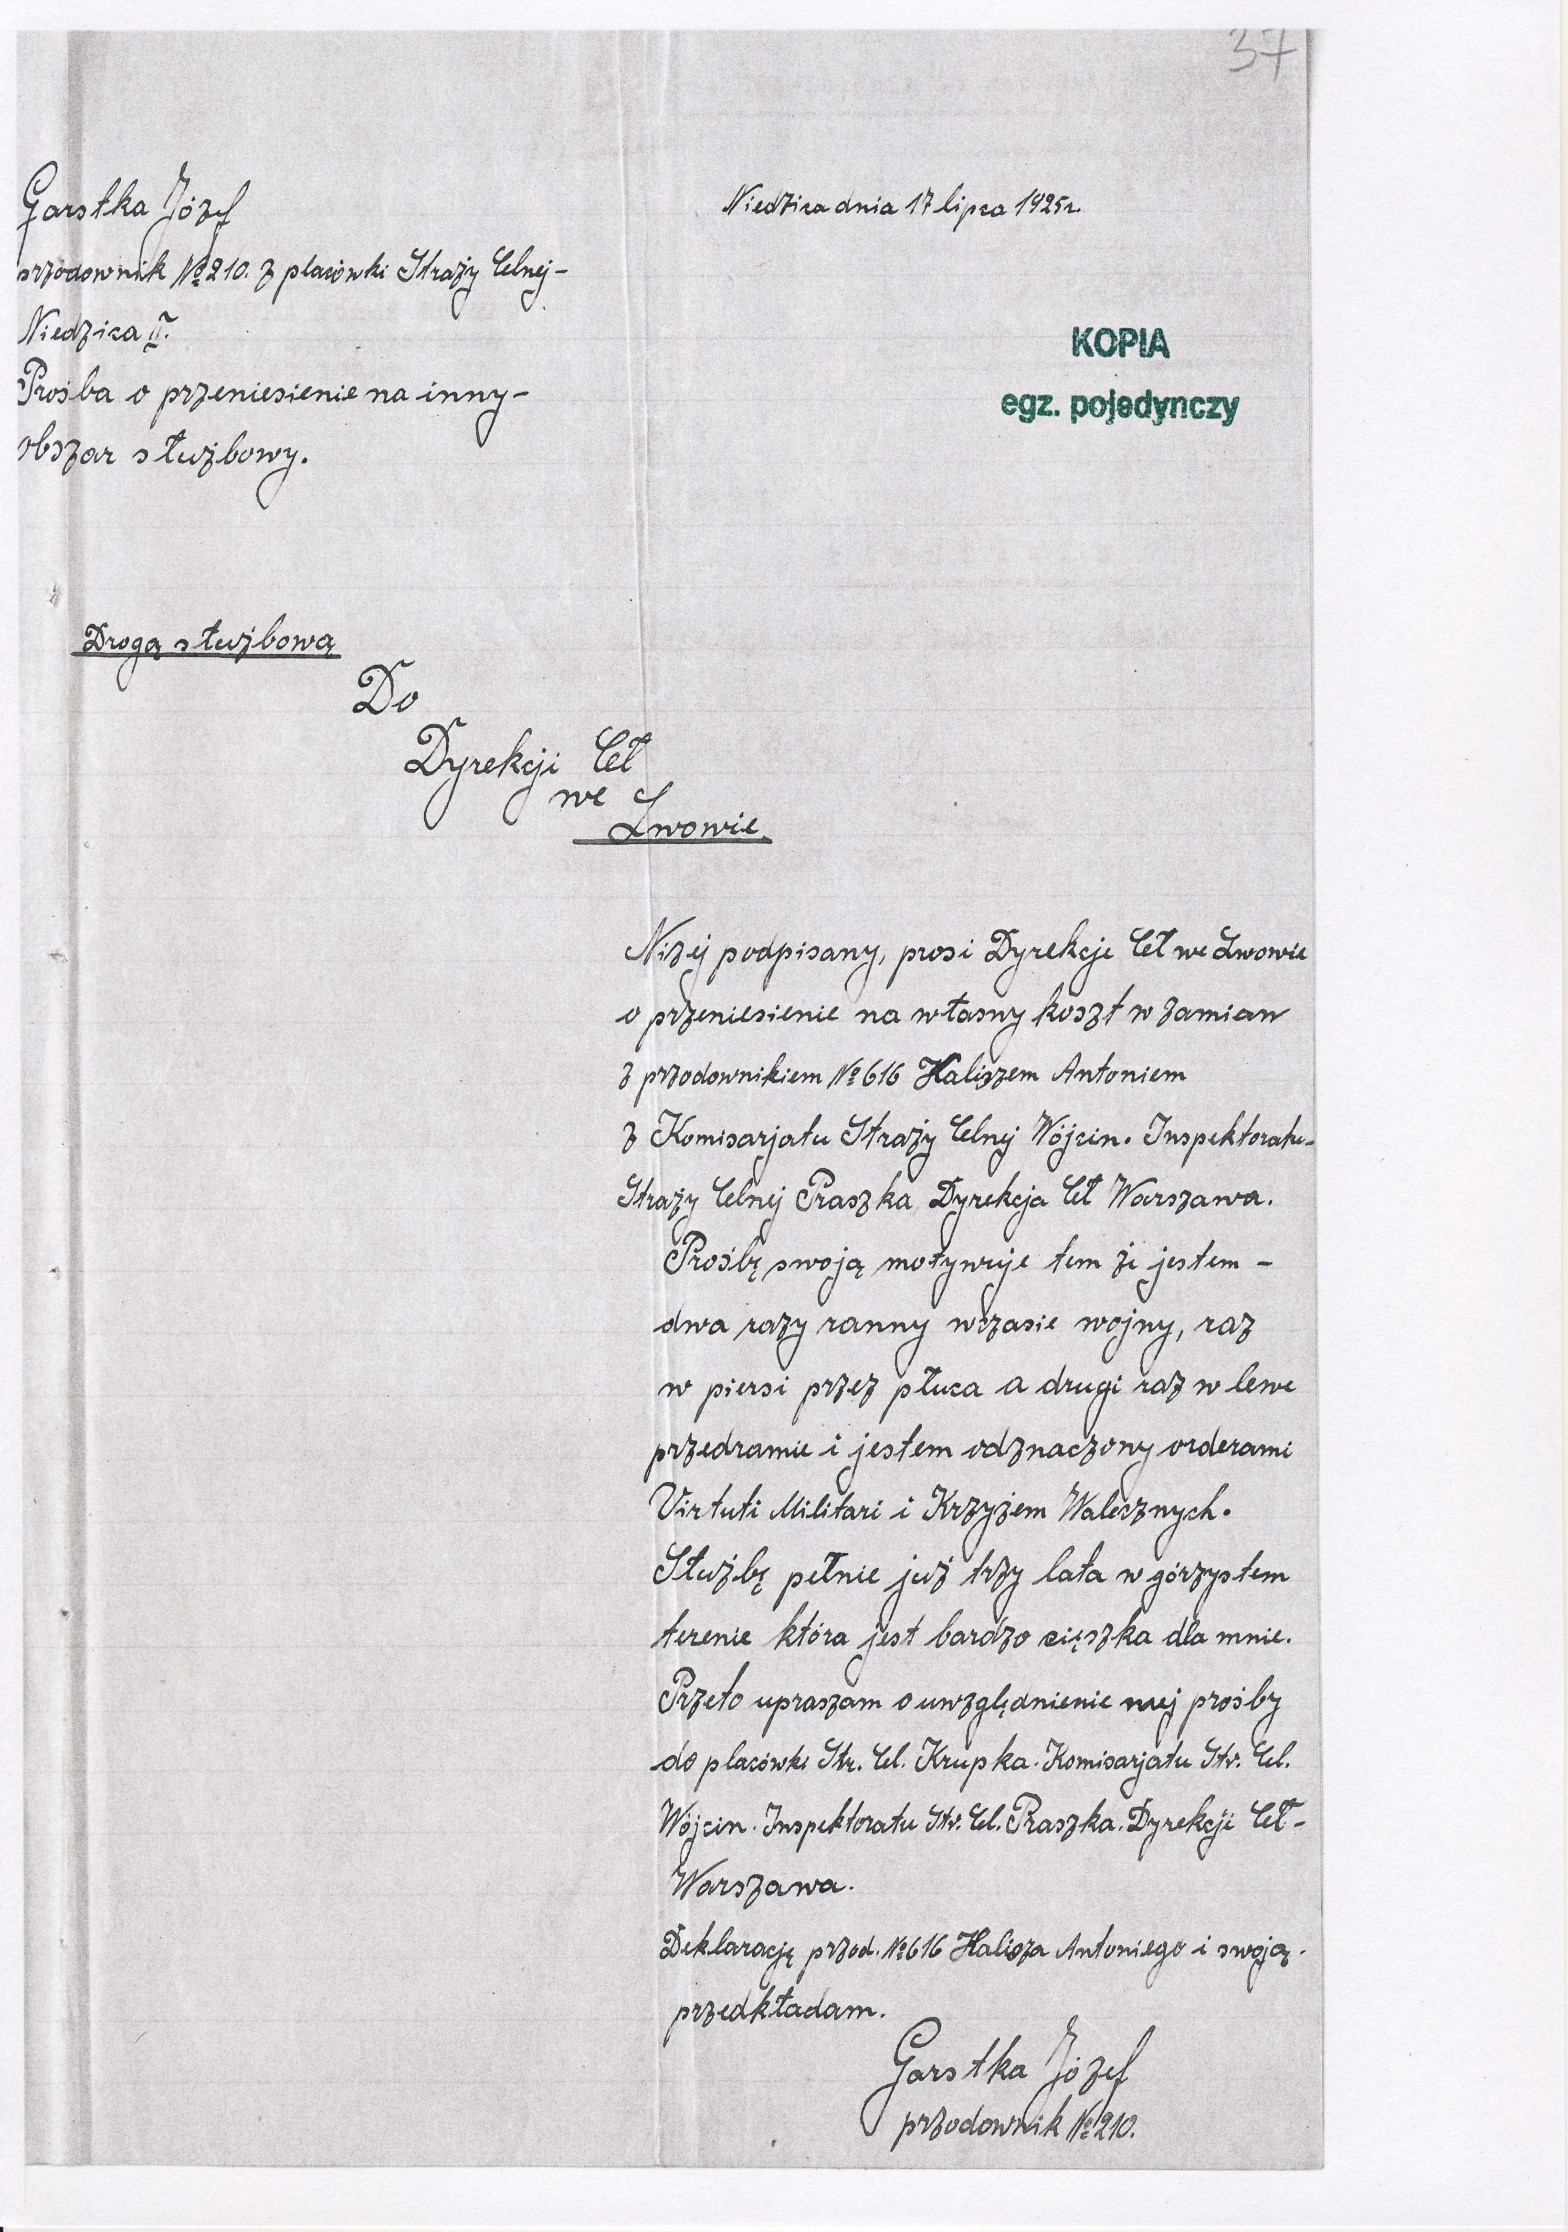 37
Garstka Józef
przodownik № 210. z placówki Straży Celnej-
Niedzica II.
Prośba o przeniesienie na inny-
obszar służbowy.
Niedzica dnia 17 lipca 1925r.
KOPIA
egz. pojedynczy
Drogą służbową
Do
Dyrekcji Ceł
we
Lwowie
Niżej podpisany, prosi Dyrekcje Ceł we Lwowie
o przeniesienie na własny koszt w zamian
z przodownikiem № 616 Haliszem Antoniem
z Komisarjatu Straży Celnej Wójcin. Inspektoratu-
Straży Celnej Praszka Dyrekcja Ceł Warszawa.
Prośbę swoją motywuje tem że jestem -
dwa razy ranny wczasie wojny, raz
w piersi przez płuca a drugi raz w lewe
przedramie i jestem odznaczony orderami
Virtuti Militari i Krzyżem Walecznych.
Służbę pełnie już trzy lata w górzystem
terenie która jest bardzo cięszka dla mnie.
Przeto upraszam o uwzględnienie mej prośby
do placówki Str. Cel. Krupka. Komisarjatu Str. Cel.
Wójcin. Inspektoratu Str. Cel. Praszka. Dyrekcji Ceł-
Warszawa.
Deklarację przod. № 616 Halisza Antoniego i swoją.
przedkładam.
Garstka Józef
przodownik № 210.